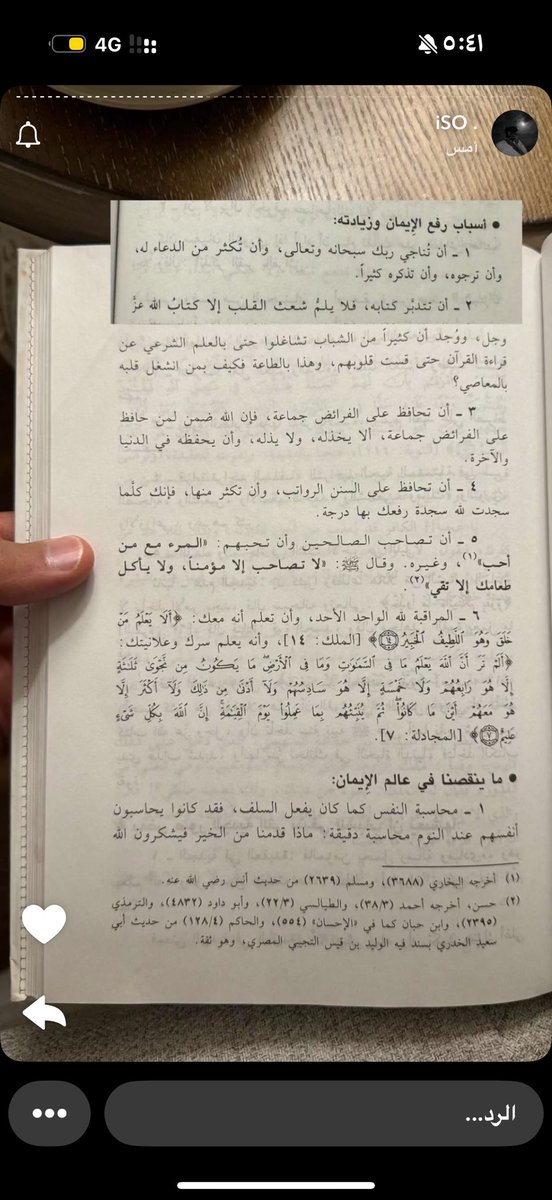 ٥:٤١
4G
iSO .
امس
• أسباب رفع الإيمان وزيادته:
١ ـ أن تُناجي ربك سبحانه وتعالى، وأن تُكثر من الدعاء له،
وأن ترجوه، وأن تذكره كثيراً.
٢ ـ أن تتدبّر كتابه، فلا يلمُّ شعث القلب إلا كتابُ الله عزَّ
وجل، ووُجد أن كثيراً من الشباب تشاغلوا حتى بالعلم الشرعي عن
قراءة القرآن حتى قست قلوبهم، وهذا بالطاعة فكيف بمن انشغل قلبه
بالمعاصي؟
٣ ـ أن تحافظ على الفرائض جماعة، فإن الله ضمن لمن حافظ
على الفرائض جماعة، ألا يخذله، ولا يذله، وأن يحفظه في الدنيا
والآخرة.
٤ ـ أن تحافظ على السنن الرواتب، وأن تكثر منها، فإنك كلّما
سجدت لله سجدة رفعك بها درجة.
٥ ـ أن تصاحب الصالحين وأن تحبهم: «المرء مع من
أحب»(١)، وغيره. وقال ﷺ: «لا تصاحب إلا مؤمناً، ولا يأكل
طعامك إلا تقي»(٢)
٦ ـ المراقبة لله الواحد الأحد، وأن تعلم أنه معك: ﴿أَلَا يَعْلَمُ مَنْ
خَلَقَ وَهُوَ اللَّطِيفُ الْخَبِيرُ ١٤﴾ [الملك: ١٤]، وأنه يعلم سرك وعلانيتك:
﴿أَلَمْ تَرَ أَنَّ اللَّهَ يَعْلَمُ مَا فِي السَّمَاوَاتِ وَمَا فِي الْأَرْضِ مَا يَكُونُ مِن نَّجْوَىٰ ثَلَاثَةٍ
إِلَّا هُوَ رَابِعُهُمْ وَلَا خَمْسَةٍ إِلَّا هُوَ سَادِسُهُمْ وَلَا أَدْنَىٰ مِن ذَٰلِكَ وَلَا أَكْثَرَ إِلَّا
هُوَ مَعَهُمْ أَيْنَ مَا كَانُوا ثُمَّ يُنَبِّئُهُم بِمَا عَمِلُوا يَوْمَ الْقِيَامَةِ إِنَّ اللَّهَ بِكُلِّ شَيْءٍ
عَلِيمٌ ٧﴾ [المجادلة: ٧].
• ما ينقصنا في عالم الإيمان:
١ ـ محاسبة النفس كما كان يفعل السلف، فقد كانوا يحاسبون
أنفسهم عند النوم محاسبة دقيقة: ماذا قدمنا من الخير فيشكرون الله
(١) أخرجه البخاري (٣٦٨٨)، ومسلم (٢٦٣٩) من حديث أنس رضي الله عنه.
(٢) حسن، أخرجه أحمد (٣٨/٣)، والطيالسي (٢٢/٣)، وأبو داود (٤٨٣٢)، والترمذي
(٢٣٩٥)، وابن حبان كما في «الإحسان» (٥٥٤)، والحاكم (١٢٨/٤) من حديث أبي
سعيد الخدري بسند فيه الوليد بن قيس التجيبي المصري، وهو ثقة.
الرد...